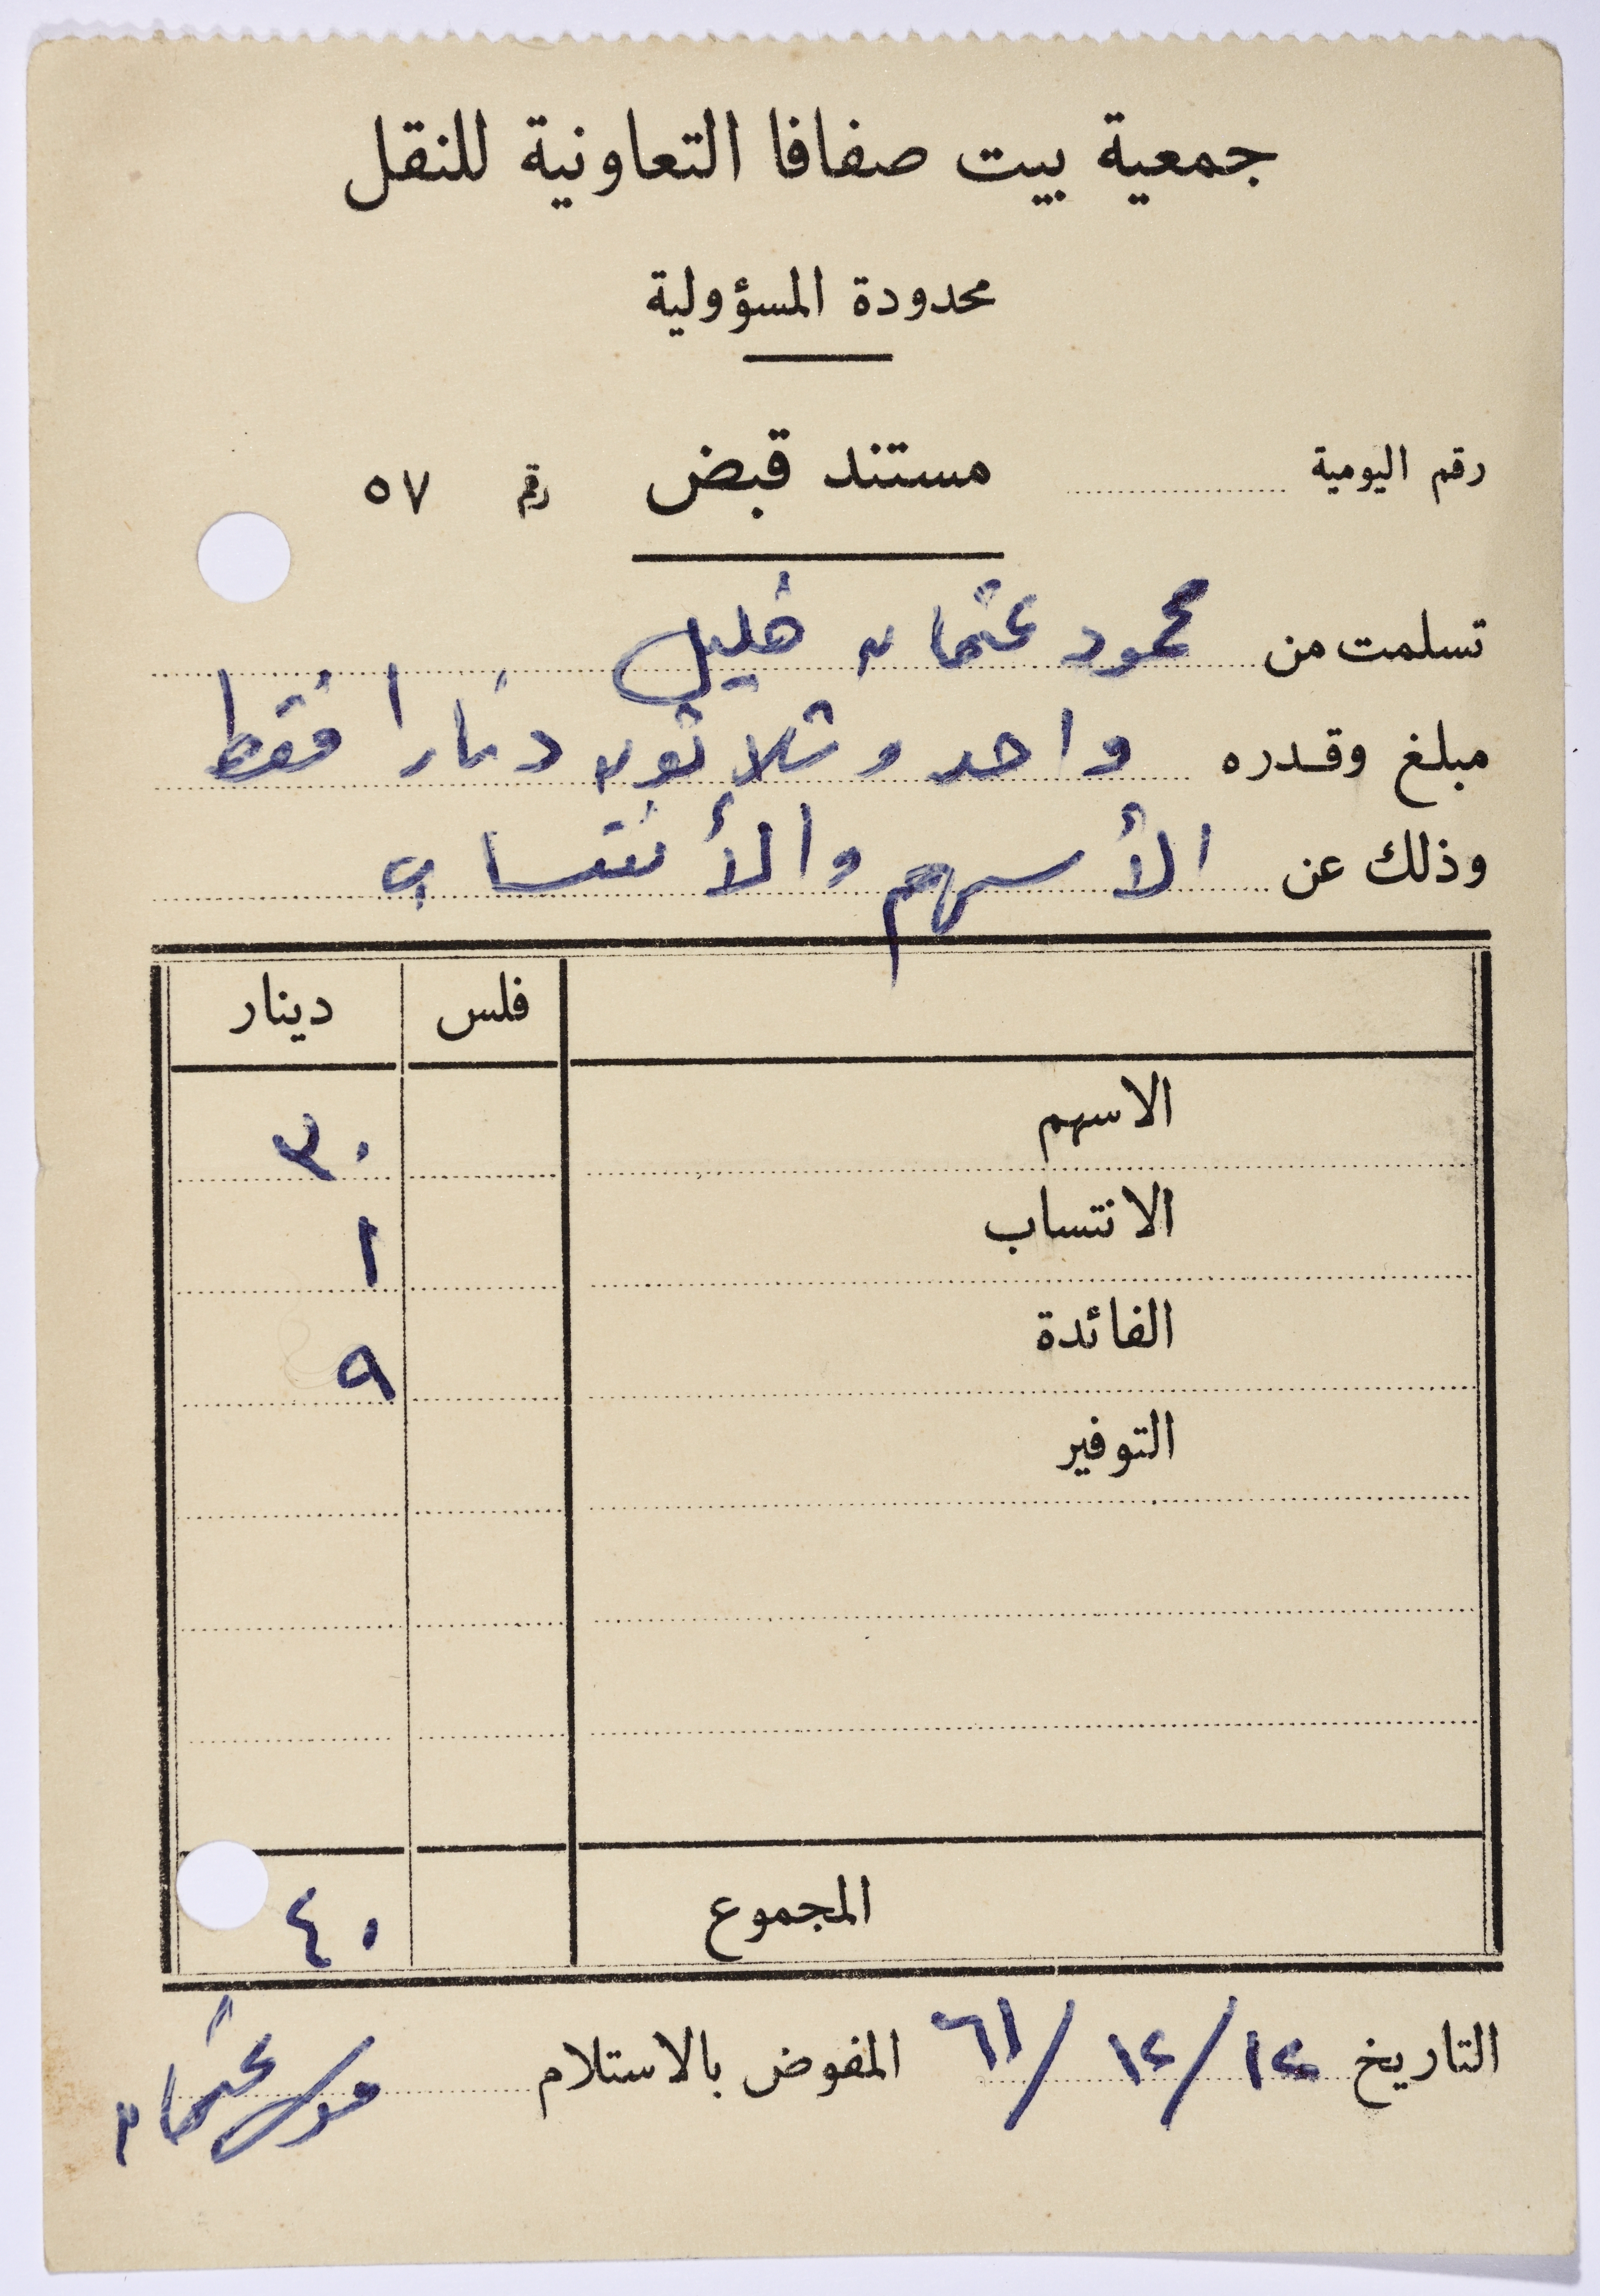 جمعية بيت صفافا التعاونية للنقل
محدودة المسؤولية
رقم اليومية مستند قبض رقم ٥٧
تسلمت من محمود عثمان خليل
مبلغ وقدره واحد وثلاثون دنارا فقط
وذلك عن الأسهم والأنتساب
فلس دينار
الاسهم ٣٠
الانتساب ١
الفائدة ٩
التوفير
المجموع ٤٠
التاريخ ١٢/١٢/٦١ المفوض بالاستلام موسى عثمان